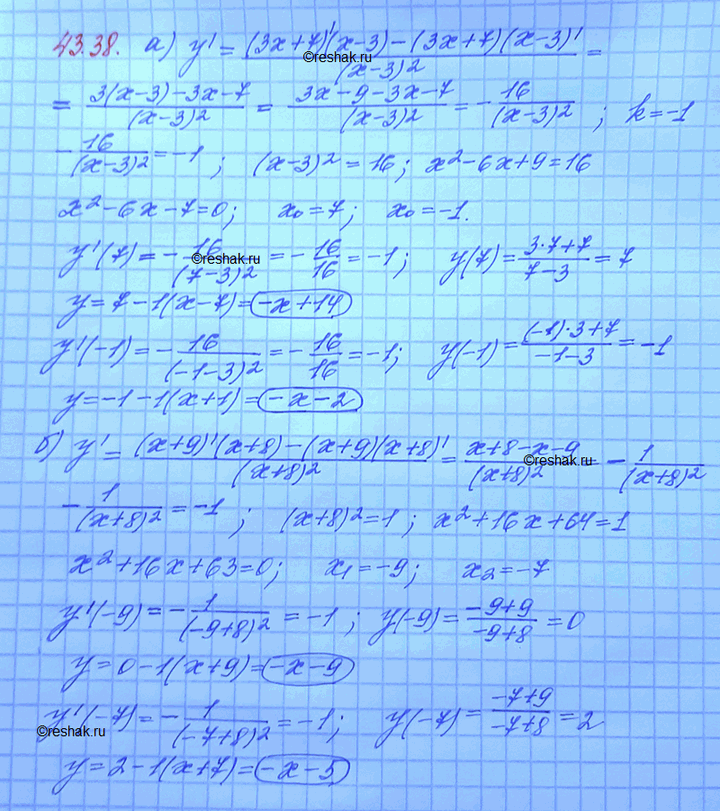 43.38. а) y' = ((3x+7)'(x-3) - (3x+7)(x-3)')/(x-3)² =
©reshak.ru
= (3(x-3)-3x-7)/(x-3)² = (3x-9-3x-7)/(x-3)² = -16/(x-3)² ; k=-1
-16/(x-3)² = -1 ; (x-3)² = 16 ; x²-6x+9=16
x²-6x-7=0; x₀=7; x₀=-1.
y'(7) = -16/(7-3)² = -16/16 = -1; y(7) = (3·7+7)/(7-3) = 7
©reshak.ru
y=7-1(x-7)=-x+14
y'(-1) = -16/(-1-3)² = -16/16 = -1; y(-1) = ((-1)·3+7)/(-1-3) = -1
y=-1-1(x+1)=-x-2
б) y' = ((x+9)'(x+8)-(x+9)(x+8)')/(x+8)² = (x+8-x-9)/(x+8)² -1/(x+8)²
©reshak.ru
-1/(x+8)² = -1 ; (x+8)²=1 ; x²+16x+64=1
x²+16x+63=0; x₁=-9; x₂=-7
y'(-9) = -1/(-9+8)² = -1 ; y(-9) = (-9+9)/(-9+8) = 0
y=0-1(x+9)=-x-9
y'(-7) = -1/(-7+8)² = -1; y(-7) = (-7+9)/(-7+8) = 2
©reshak.ru
y=2-1(x+7)=-x-5